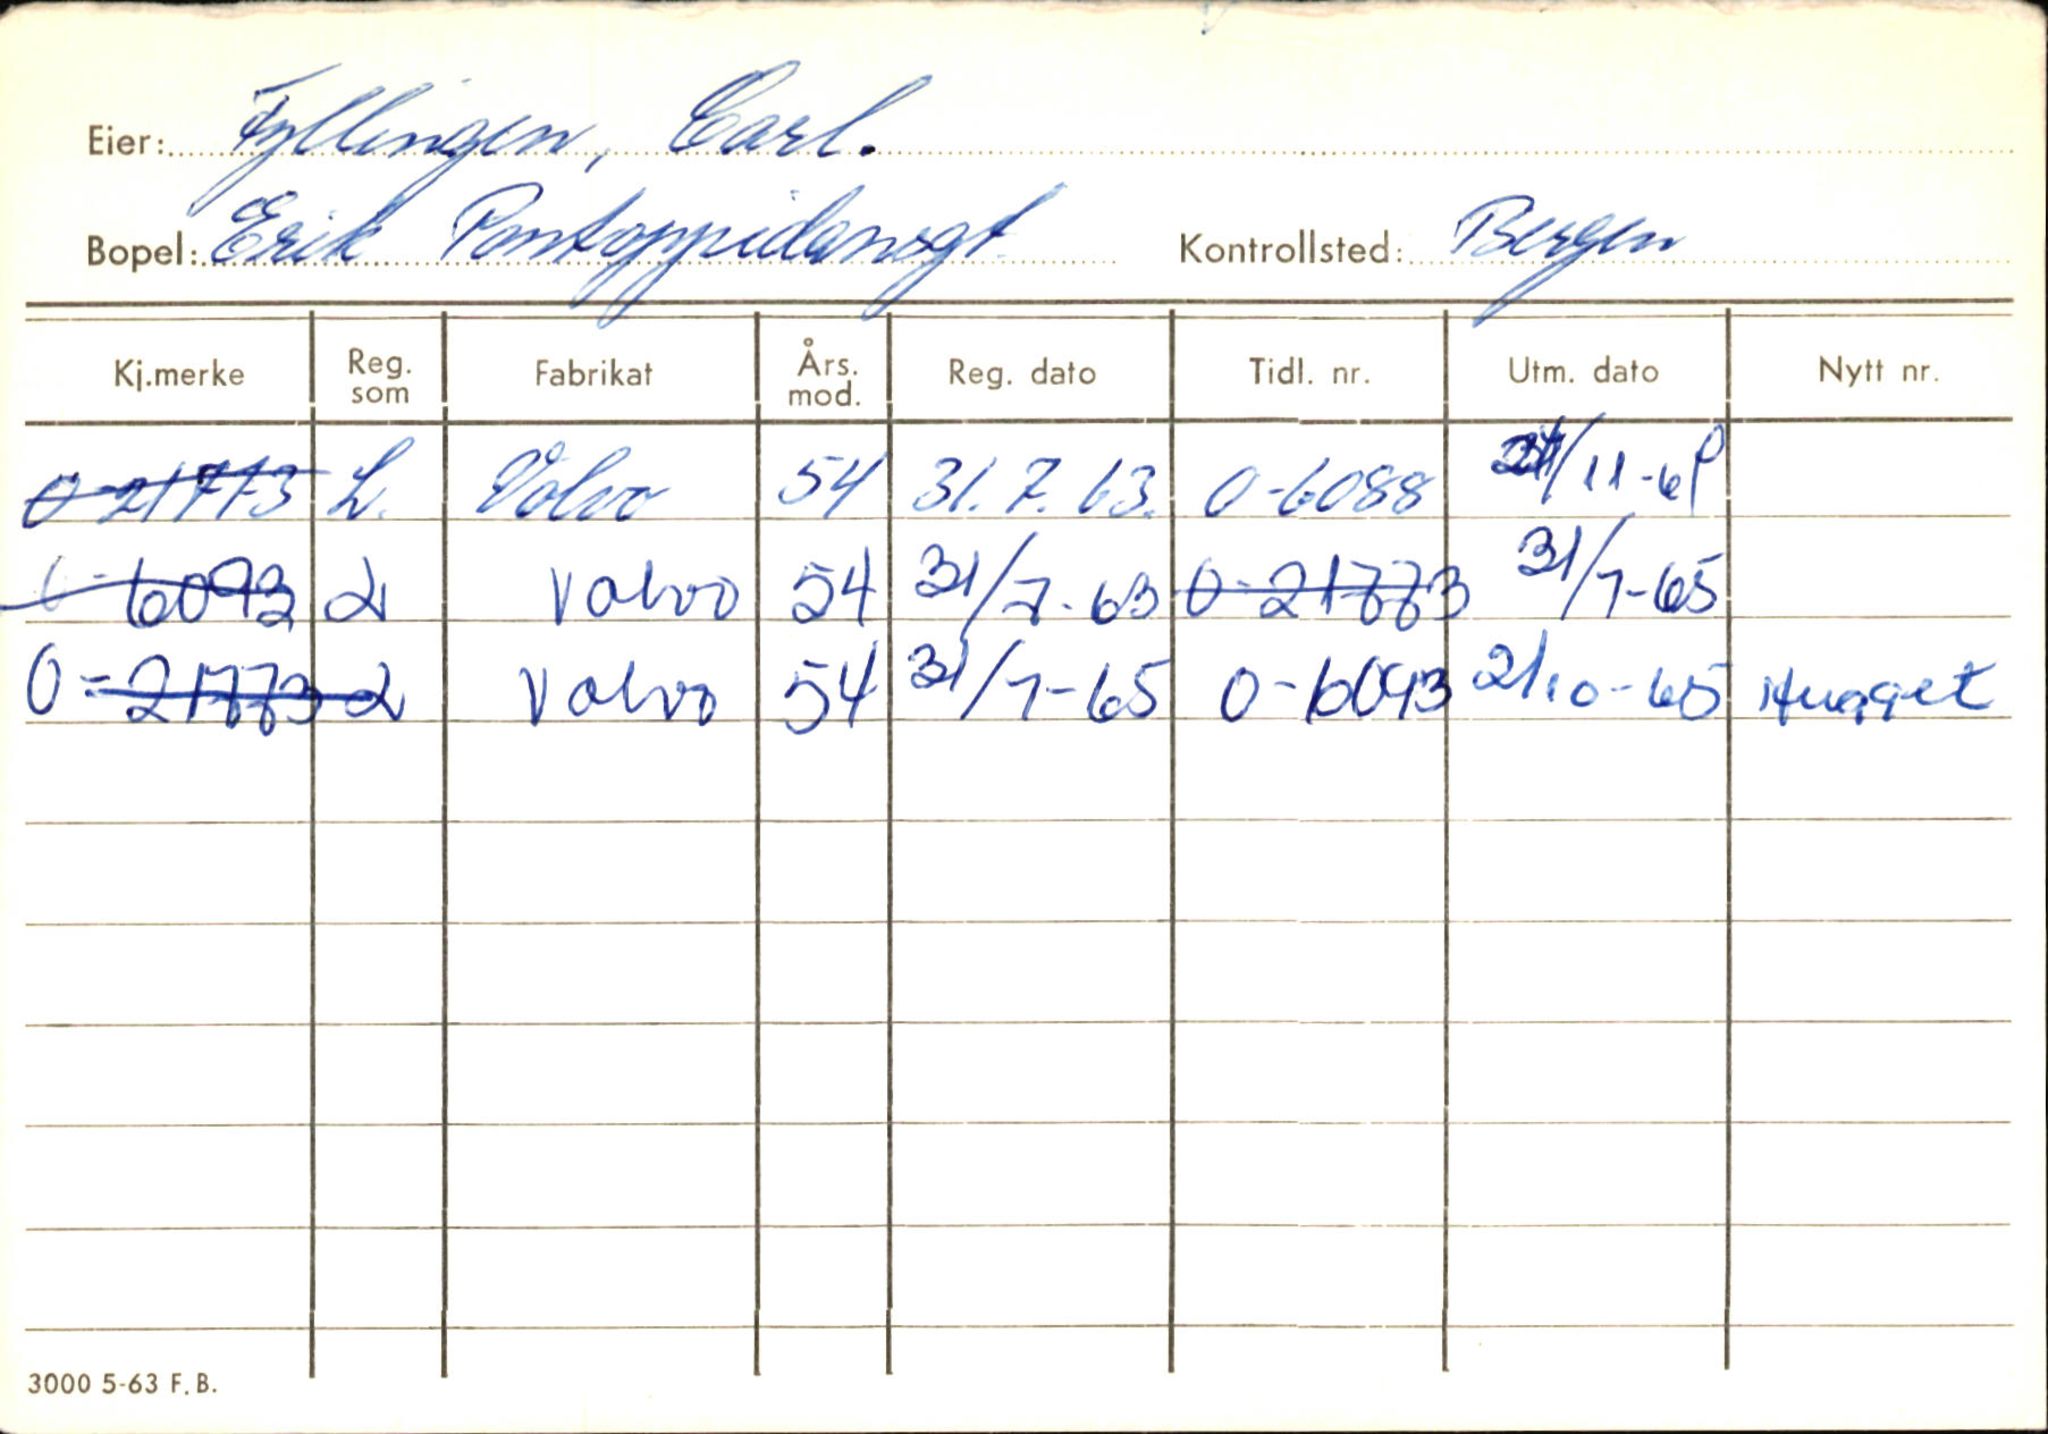 Eier: Fyllingen, Carl.
Bopel: Erik Pontoppidansgt. Kontrollsted: Bergen
Kj.merke Reg. som Fabrikat Års. mod. Reg. dato Tidl. nr. Utm. dato Nytt nr.
O-21773 L. Volvo 54 31.7.63. O-6088 /11-6
6093 L Volvo 54 31/7-63 O-21773 31/7-65
O-21773 L Volvo 54 31/7-65 O-6093 21/10-65 Hugget
3000 5-63 F.B.